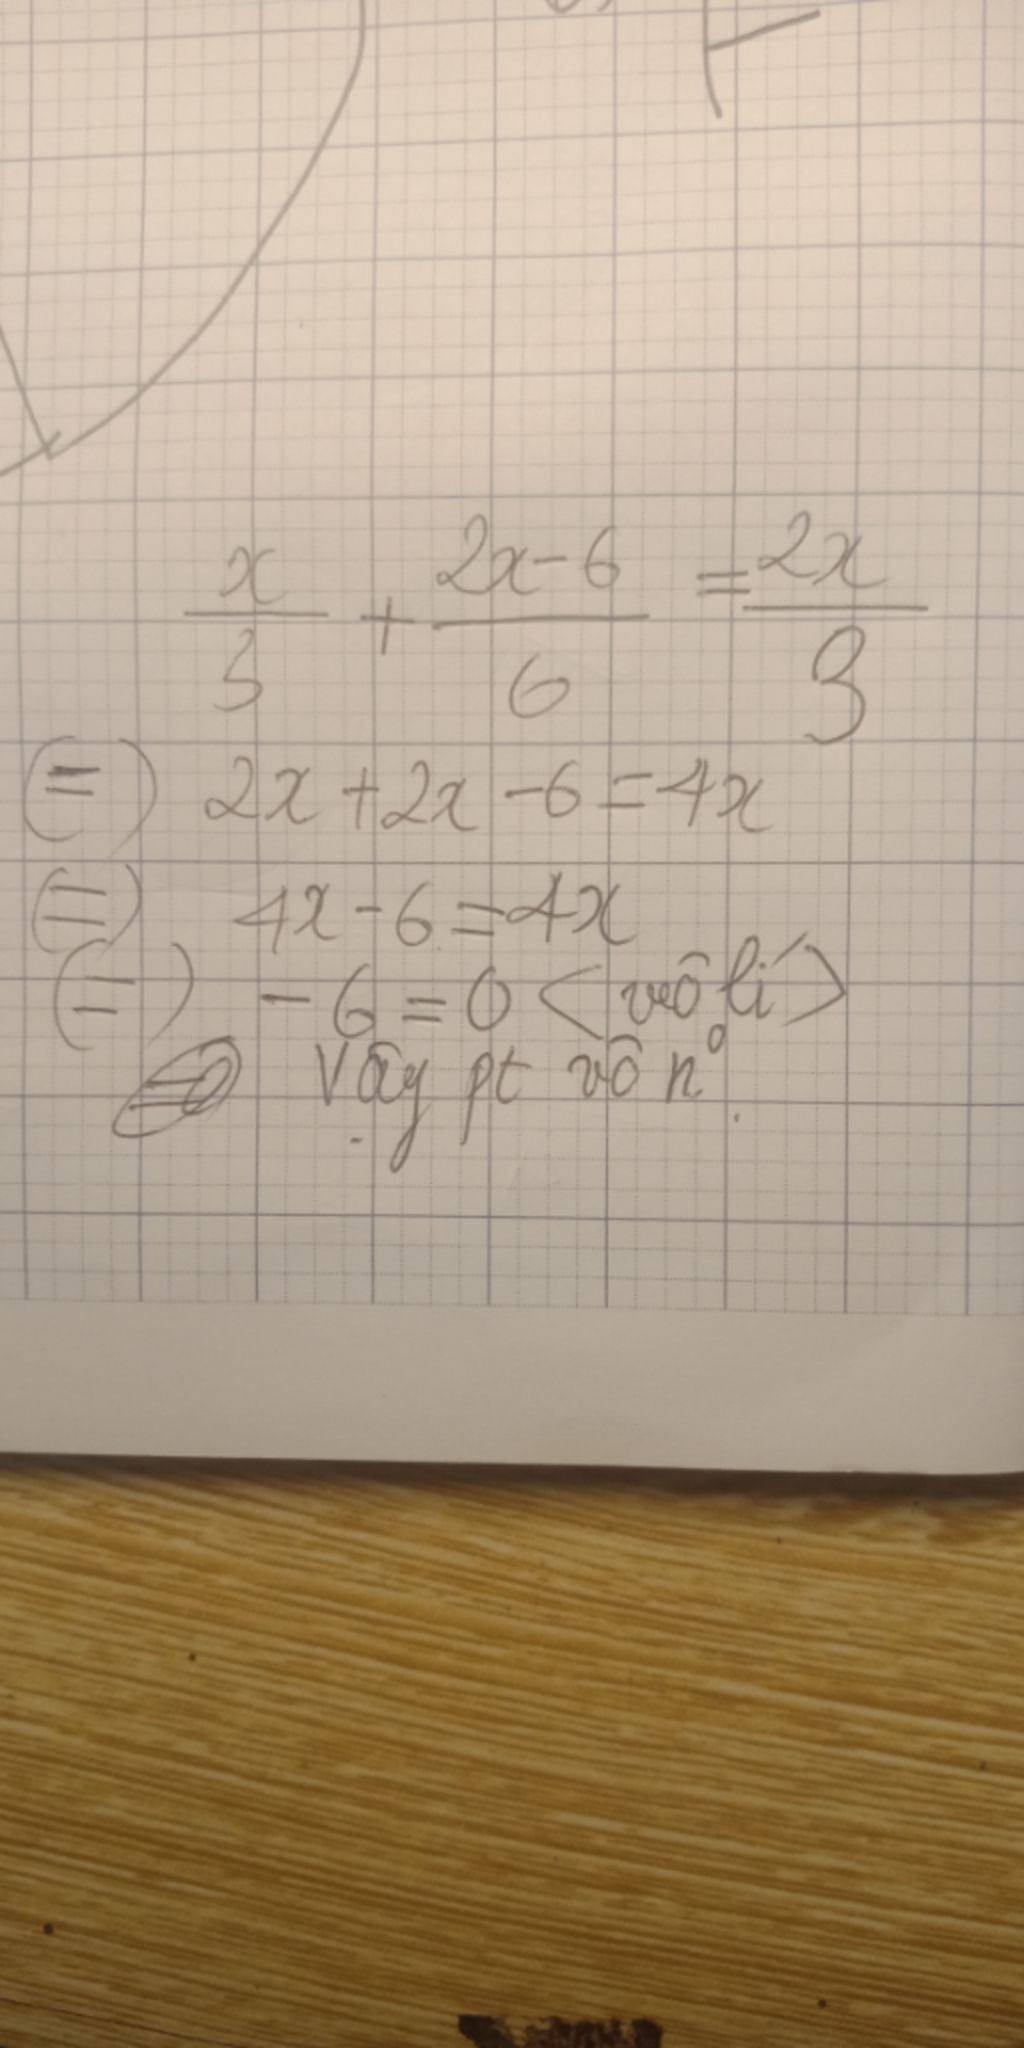 x/3 + (2x-6)/6 = 2x/3
(=) 2x + 2x - 6 = 4x
(=) 4x - 6 = 4x
(=) - 6 = 0 < vô lí >
Vậy pt vô n°.